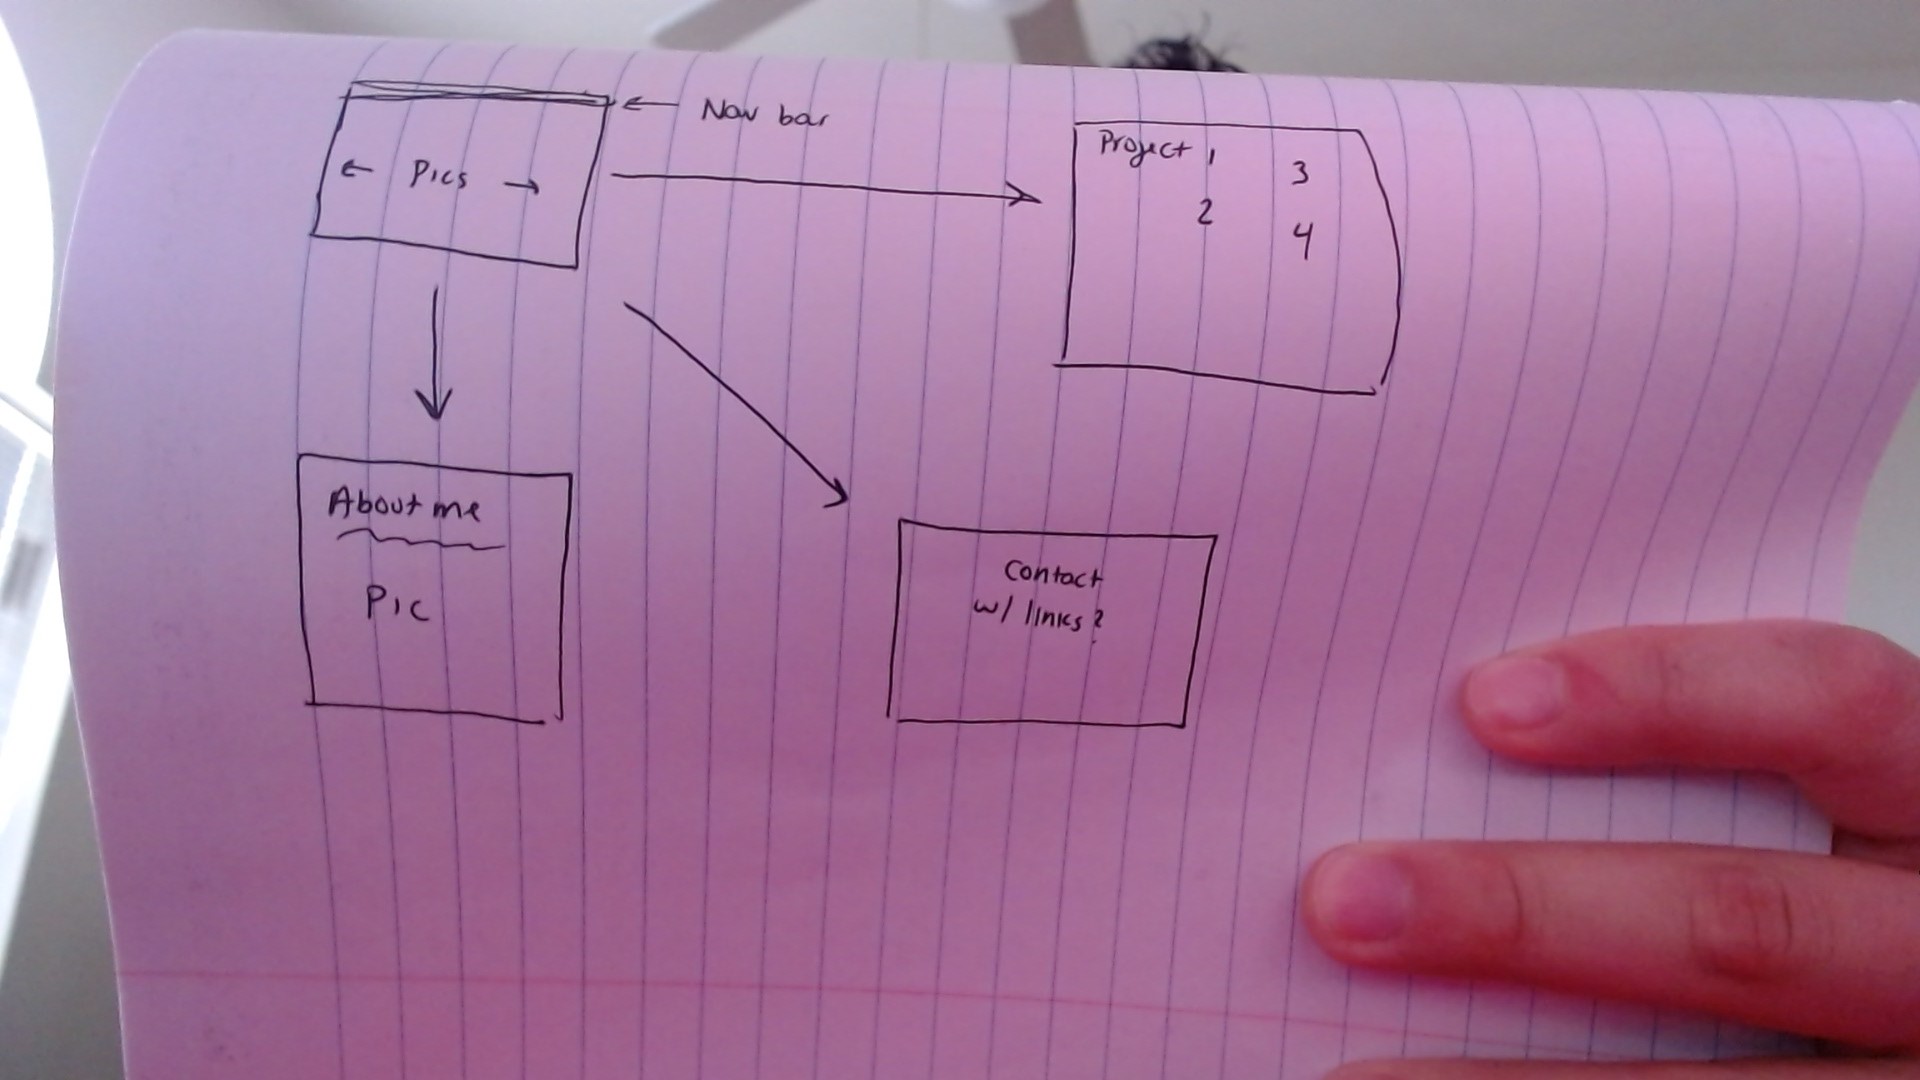 Nav bar
← Pics →
Project 1 3
2 4
About me
Pic
Contact
w/ links?